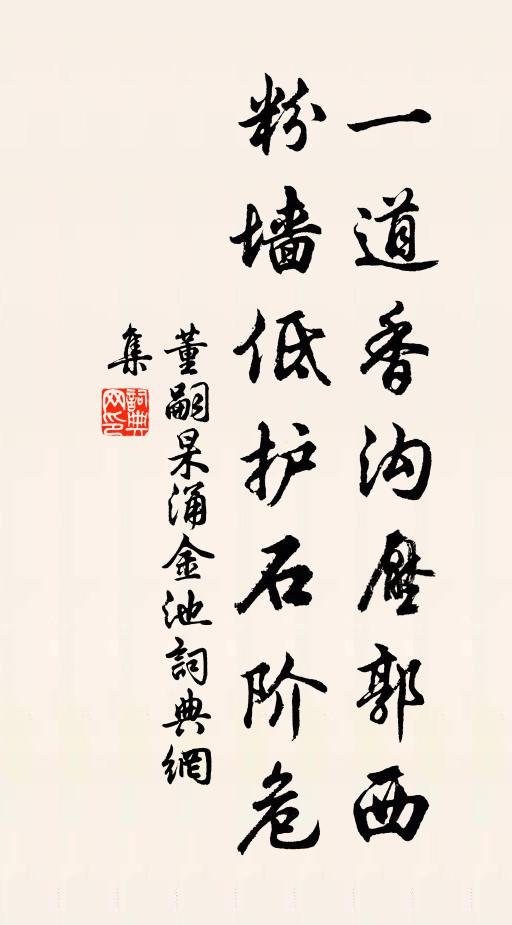 一道香沟壓郭西
粉墙低护石阶危
董嗣杲涌金池詞典網
集
詞典网印